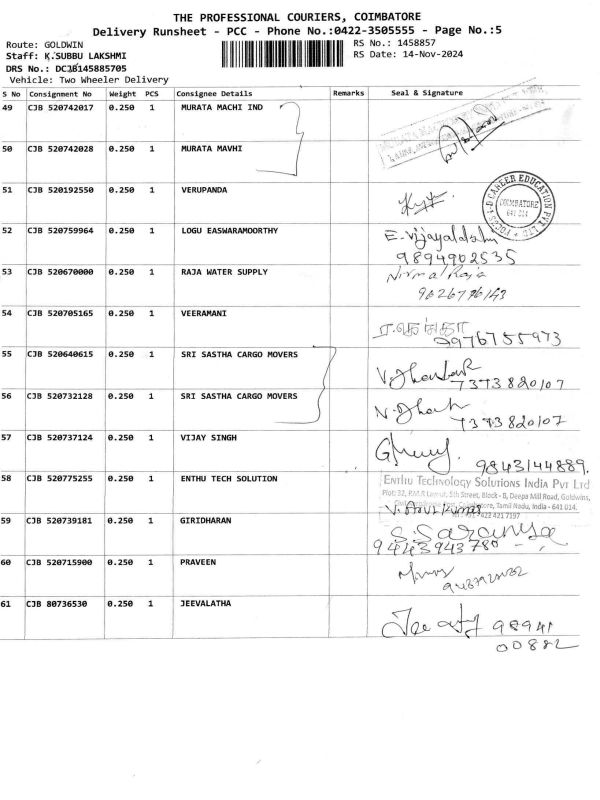 THE PROFESSIONAL COURIERS, COIMBATORE
Delivery Runsheet - PCC - Phone No.:0422-3505555 - Page No.:5
Route: GOLDWIN
RS No.: 1458857
Staff: K.SUBBU LAKSHMI
RS Date: 14-Nov-2024
DRS No.: DCJB145885705
Vehicle: Two Wheeler Delivery
S No Consignment No Weight PCS Consignee Details Remarks Seal & Signature
49 CJB 520742017 0.250 1 MURATA MACHI IND
50 CJB 520742028 0.250 1 MURATA MAVHI
51 CJB 520192550 0.250 1 VERUPANDA
CAREER EDUCATION PVT LTD
COIMBATORE
641 014
52 CJB 520759964 0.250 1 LOGU EASWARAMOORTHY E.Vijayalakshmi
9894902535
53 CJB 520670000 0.250 1 RAJA WATER SUPPLY Nirmal Raja
9626776143
54 CJB 520705165 0.250 1 VEERAMANI
9976755973
55 CJB 520640615 0.250 1 SRI SASTHA CARGO MOVERS
7373820107
56 CJB 520732128 0.250 1 SRI SASTHA CARGO MOVERS
7373820107
57 CJB 520737124 0.250 1 VIJAY SINGH
9843144889.
58 CJB 520775255 0.250 1 ENTHU TECH SOLUTION Enthu Technology Solutions India Pvt Ltd
5th Street, Block - B, Deepa Mill Road, Goldwins,
Tamil Nadu, India - 641 014.
V. Arul Kumar 422 421 7197
59 CJB 520739181 0.250 1 GIRIDHARAN S.Saranya
9443943780
60 CJB 520715900 0.250 1 PRAVEEN
61 CJB 80736530 0.250 1 JEEVALATHA 98941
00882